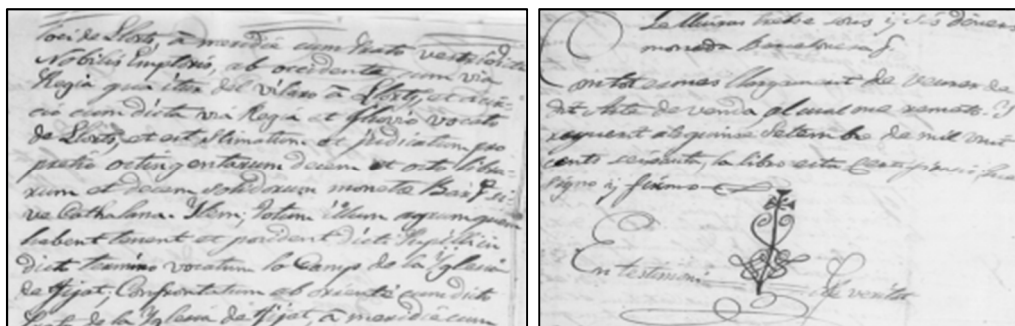 loci de Llorts, à meridie cum Prato
Nobilis Emptoris, ab occidente cum via
Regia qua itur del vilaro à Llorts, et à cir-
cio cum dicta via Regia et fluvio vocato
de Llorts, et est stimatum et judicatum pro
pretio octingentarum decem et octo libra-
rum et decem solidorum moneta Bar
ve Cathalana. Item; Totum illum agrum quem
habent tenent et possident dicti Pupilli in
dicto termino vocatum lo Camp de la Yglesia
de Sijat; Confrontatum ab oriente cum dicto
de la Yglesia de Sijat, à meridie cum
lliuras tretse sous y sis diners
moneda Barcelonesa
con tot es mes llargament de veurer de
dit Acte de venda al cual me remeto. Y
request als quinse Setembre de mil vuit
cents seixanta, la libro esta
signo y firmo
En testimoni de veritat